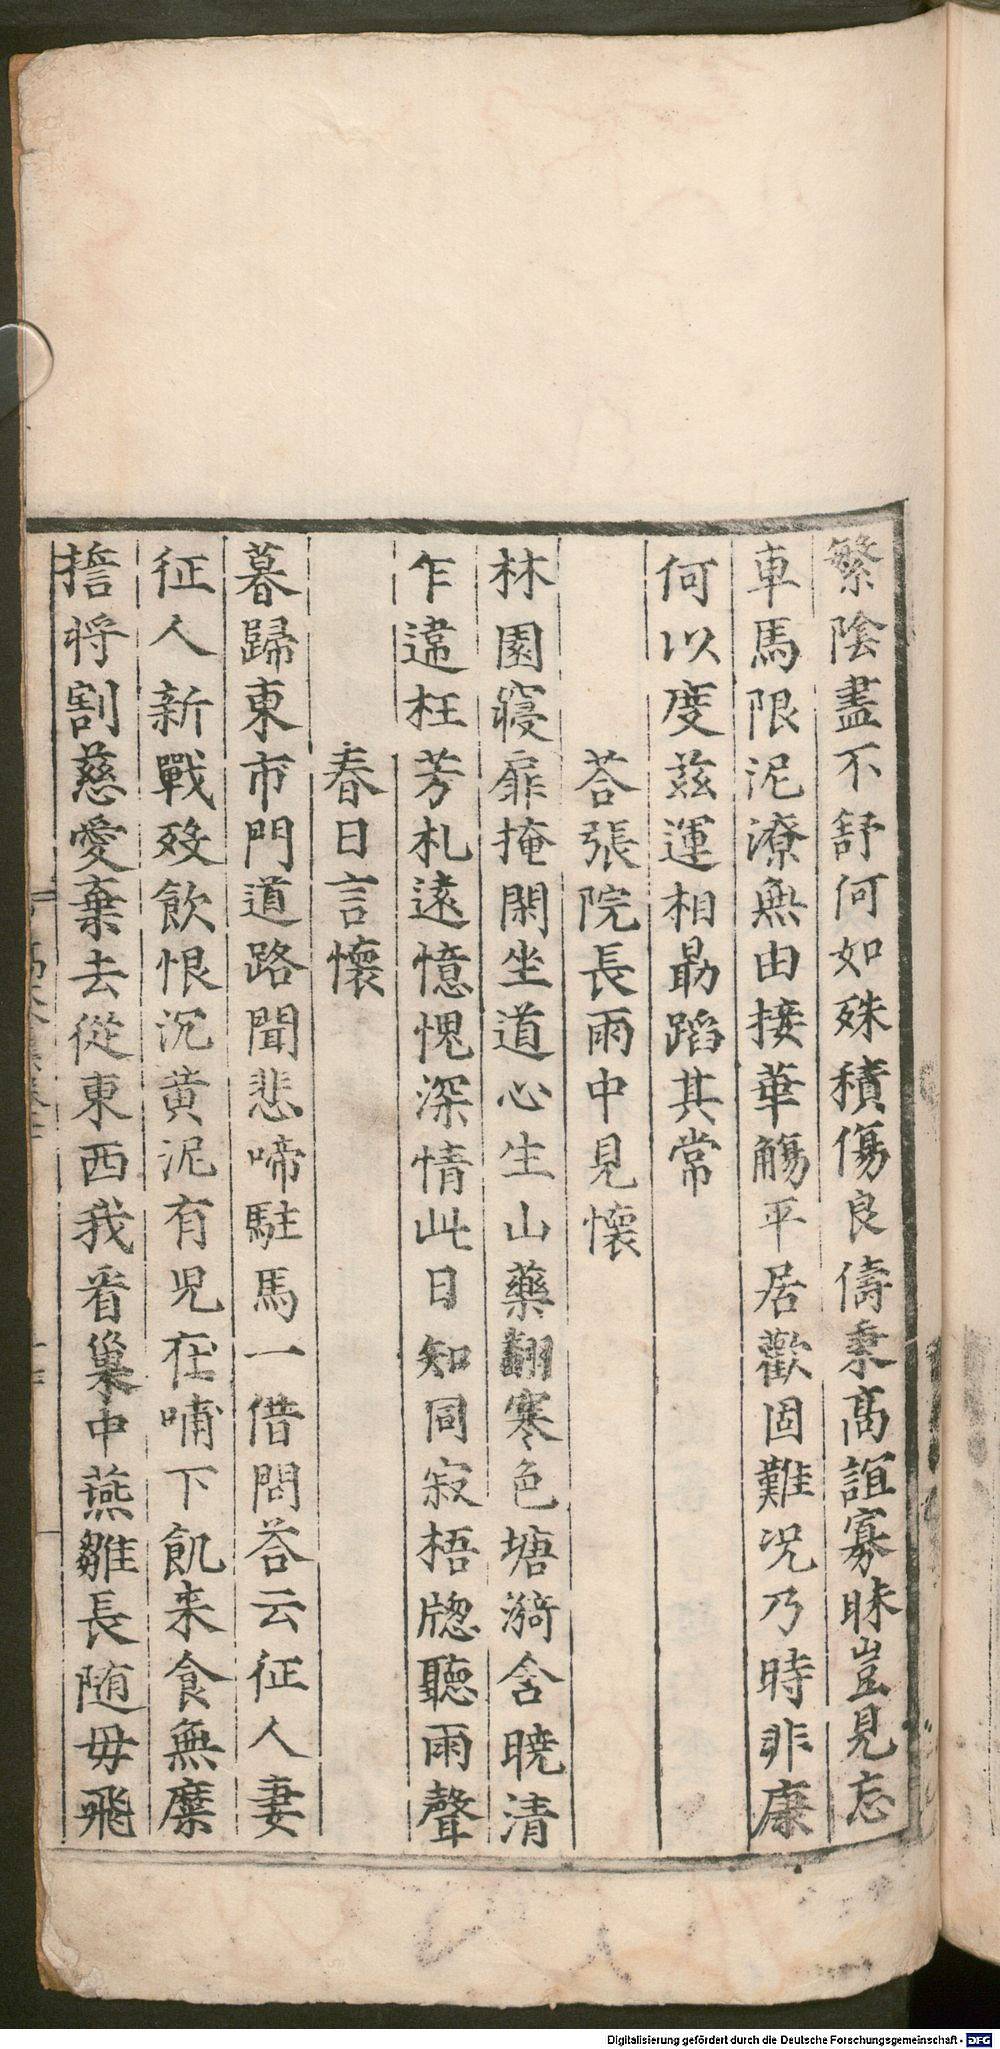 繁陰盡不舒何如殊積傷良儔秉高誼寡昧豈見忘
車馬限泥潦無由接華觴平居歡固難况乃時非康
何以度兹運相勗蹈其常
荅張院長雨中見懷
林園寢扉掩閑坐道心生山藥翻寒色塘漪含曉清
乍違枉芳札遠憶愧深情此日知同寂梧牕聽雨聲
春日言懷
暮歸東市門道路聞悲啼駐馬一借問荅云征人妻
征人新戰殁飲恨沉黃泥有兒在哺下飢来食無糜
擔将割慈愛棄去從東西我看巢中燕雛長随毋飛
Digitalisierung gefördert durch die Deutsche Forschungsgemeinschaft - DFG